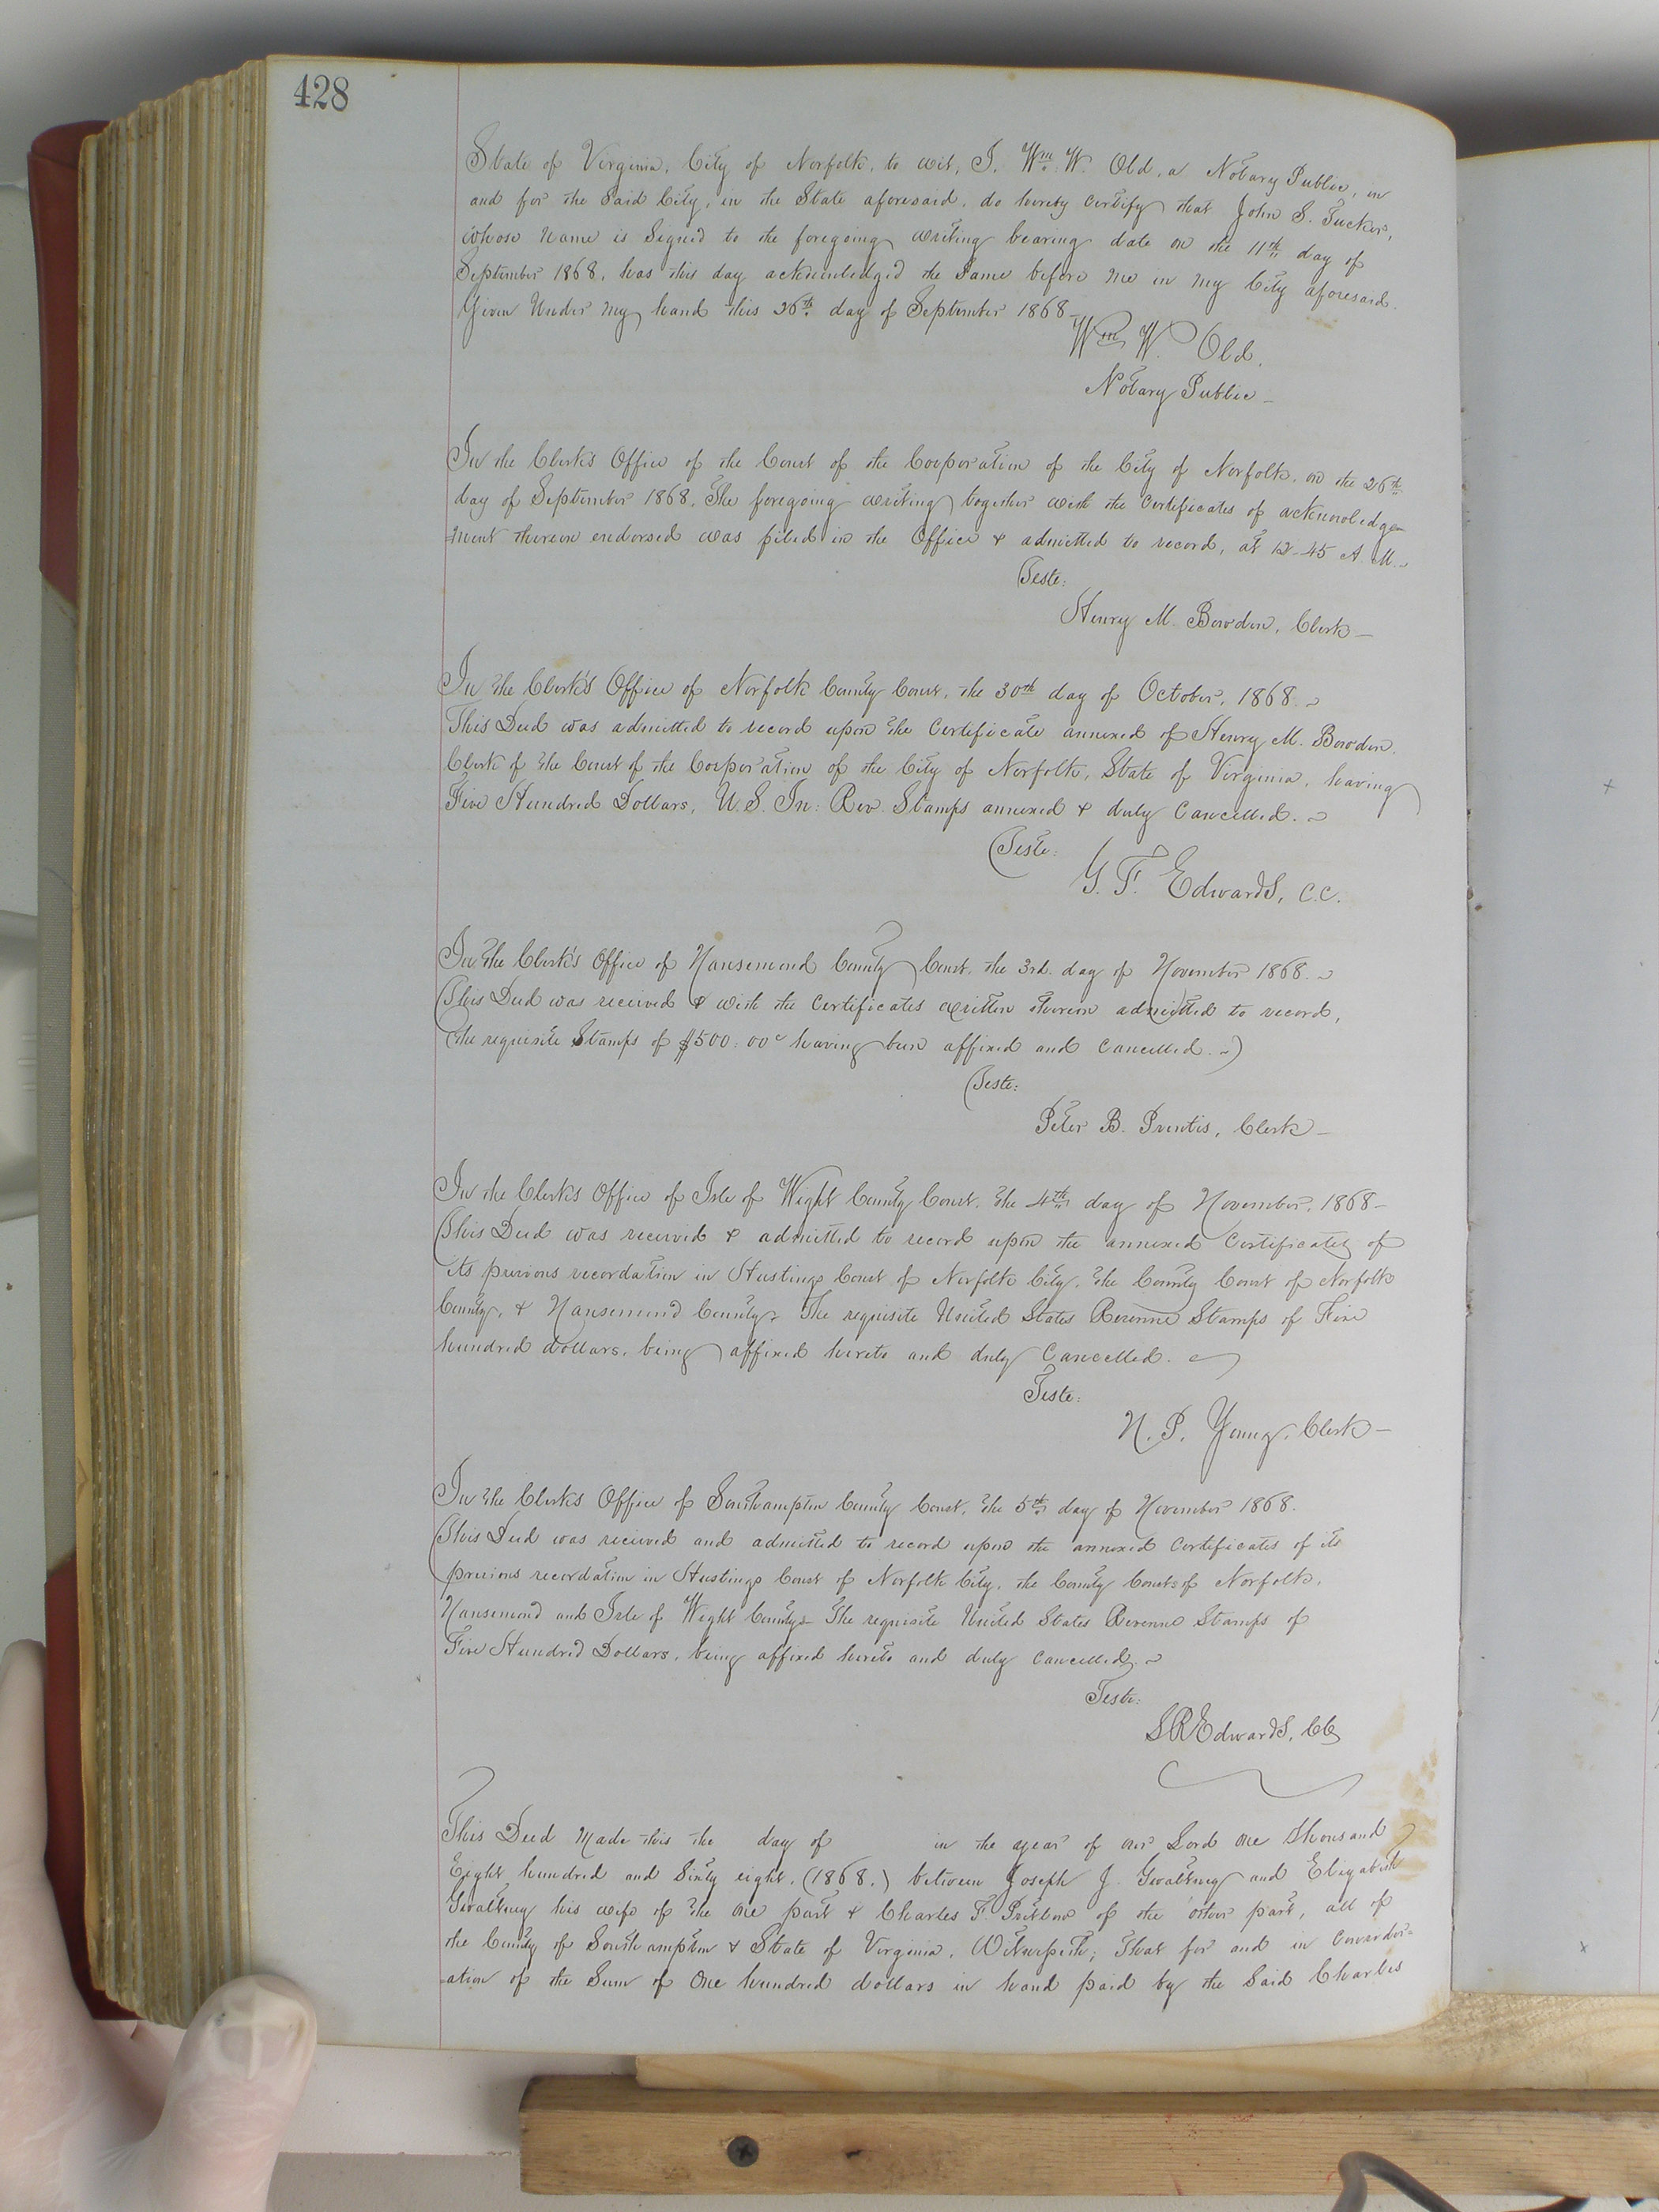 428
State of Virginia, City of Norfolk, to wit, I. Wm. W. Old, a Notary Public, in
and for the Said City, in the State aforesaid, do hereby certify that John S. Tucker,
whose name is Signed to the foregoing writing bearing date on the 11th day of
September 1868, has this day acknowledged the Same before me in my City aforesaid.
Given Under my hand this 26th day of September 1868—
Wm W. Old.
Notary Public—
In the Clerk's Office of the Court of the Corporation of the City of Norfolk, on the 26th
day of September 1868, The foregoing writing together with the Certificates of acknowledge
=ment thereon endorsed was filed in the Office & admitted to record, at 12-45 A. M.
Teste:
Henry M. Bowden, Clerk—
In the Clerk's Office of Norfolk County Court, the 30th day of October, 1868.
This Deed was admitted to record upon the Certificate annexed of Henry M. Bowden
Clerk of the Court of the Corporation of the City of Norfolk, State of Virginia, having
Five Hundred Dollars, U.S. In: Rev. Stamps annexed & duly Cancelled.
Teste:
G. T. Edwards, C.C.
In the Clerk's Office of Nansemond County Court, the 3rd. day of November 1868.
This Deed was received & with the Certificates written thereon admitted to record,
the requisite Stamps of $500:00c having been affixed and Cancelled.
Teste:
Peter B. Prentis, Clerk—
In the Clerk's Office of Isle of Wight County Court, the 4th day of November, 1868—
This Deed was received & admitted to record upon the annexed Certificates of
its previous recordation in Hustings Court of Norfolk City, the County Court of Norfolk
County, & Nansemond County. The requisite United States Revenue Stamps of Five
hundred dollars, being affixed hereto and duly Cancelled.
Teste:
N. P. Young, Clerk—
In the Clerk's Office of Southampton County Court, the 5th day of November 1868.
This Deed was received and admitted to record upon the annexed Certificates of its
previous recordation in Hustings Court of Norfolk City, the County Courts of Norfolk,
Nansemond and Isle of Wight Countys. The requisite United States Revenue Stamps of
Five Hundred Dollars, being affixed hereto and duly Cancelled.
Teste:
L R Edwards, CC
This Deed Made this the day of in the year of our Lord One thousand
Eight hundred and Sixty eight, (1868.) between Joseph J. Gwaltney and Elizabeth
Gwaltney his wife of the one part & Charles F. Pretlow of the other part, all of
the County of Southampton & State of Virginia, Witnesseth; That for and in Consider=
=ation of the Sum of One hundred dollars in hand paid by the Said Charles